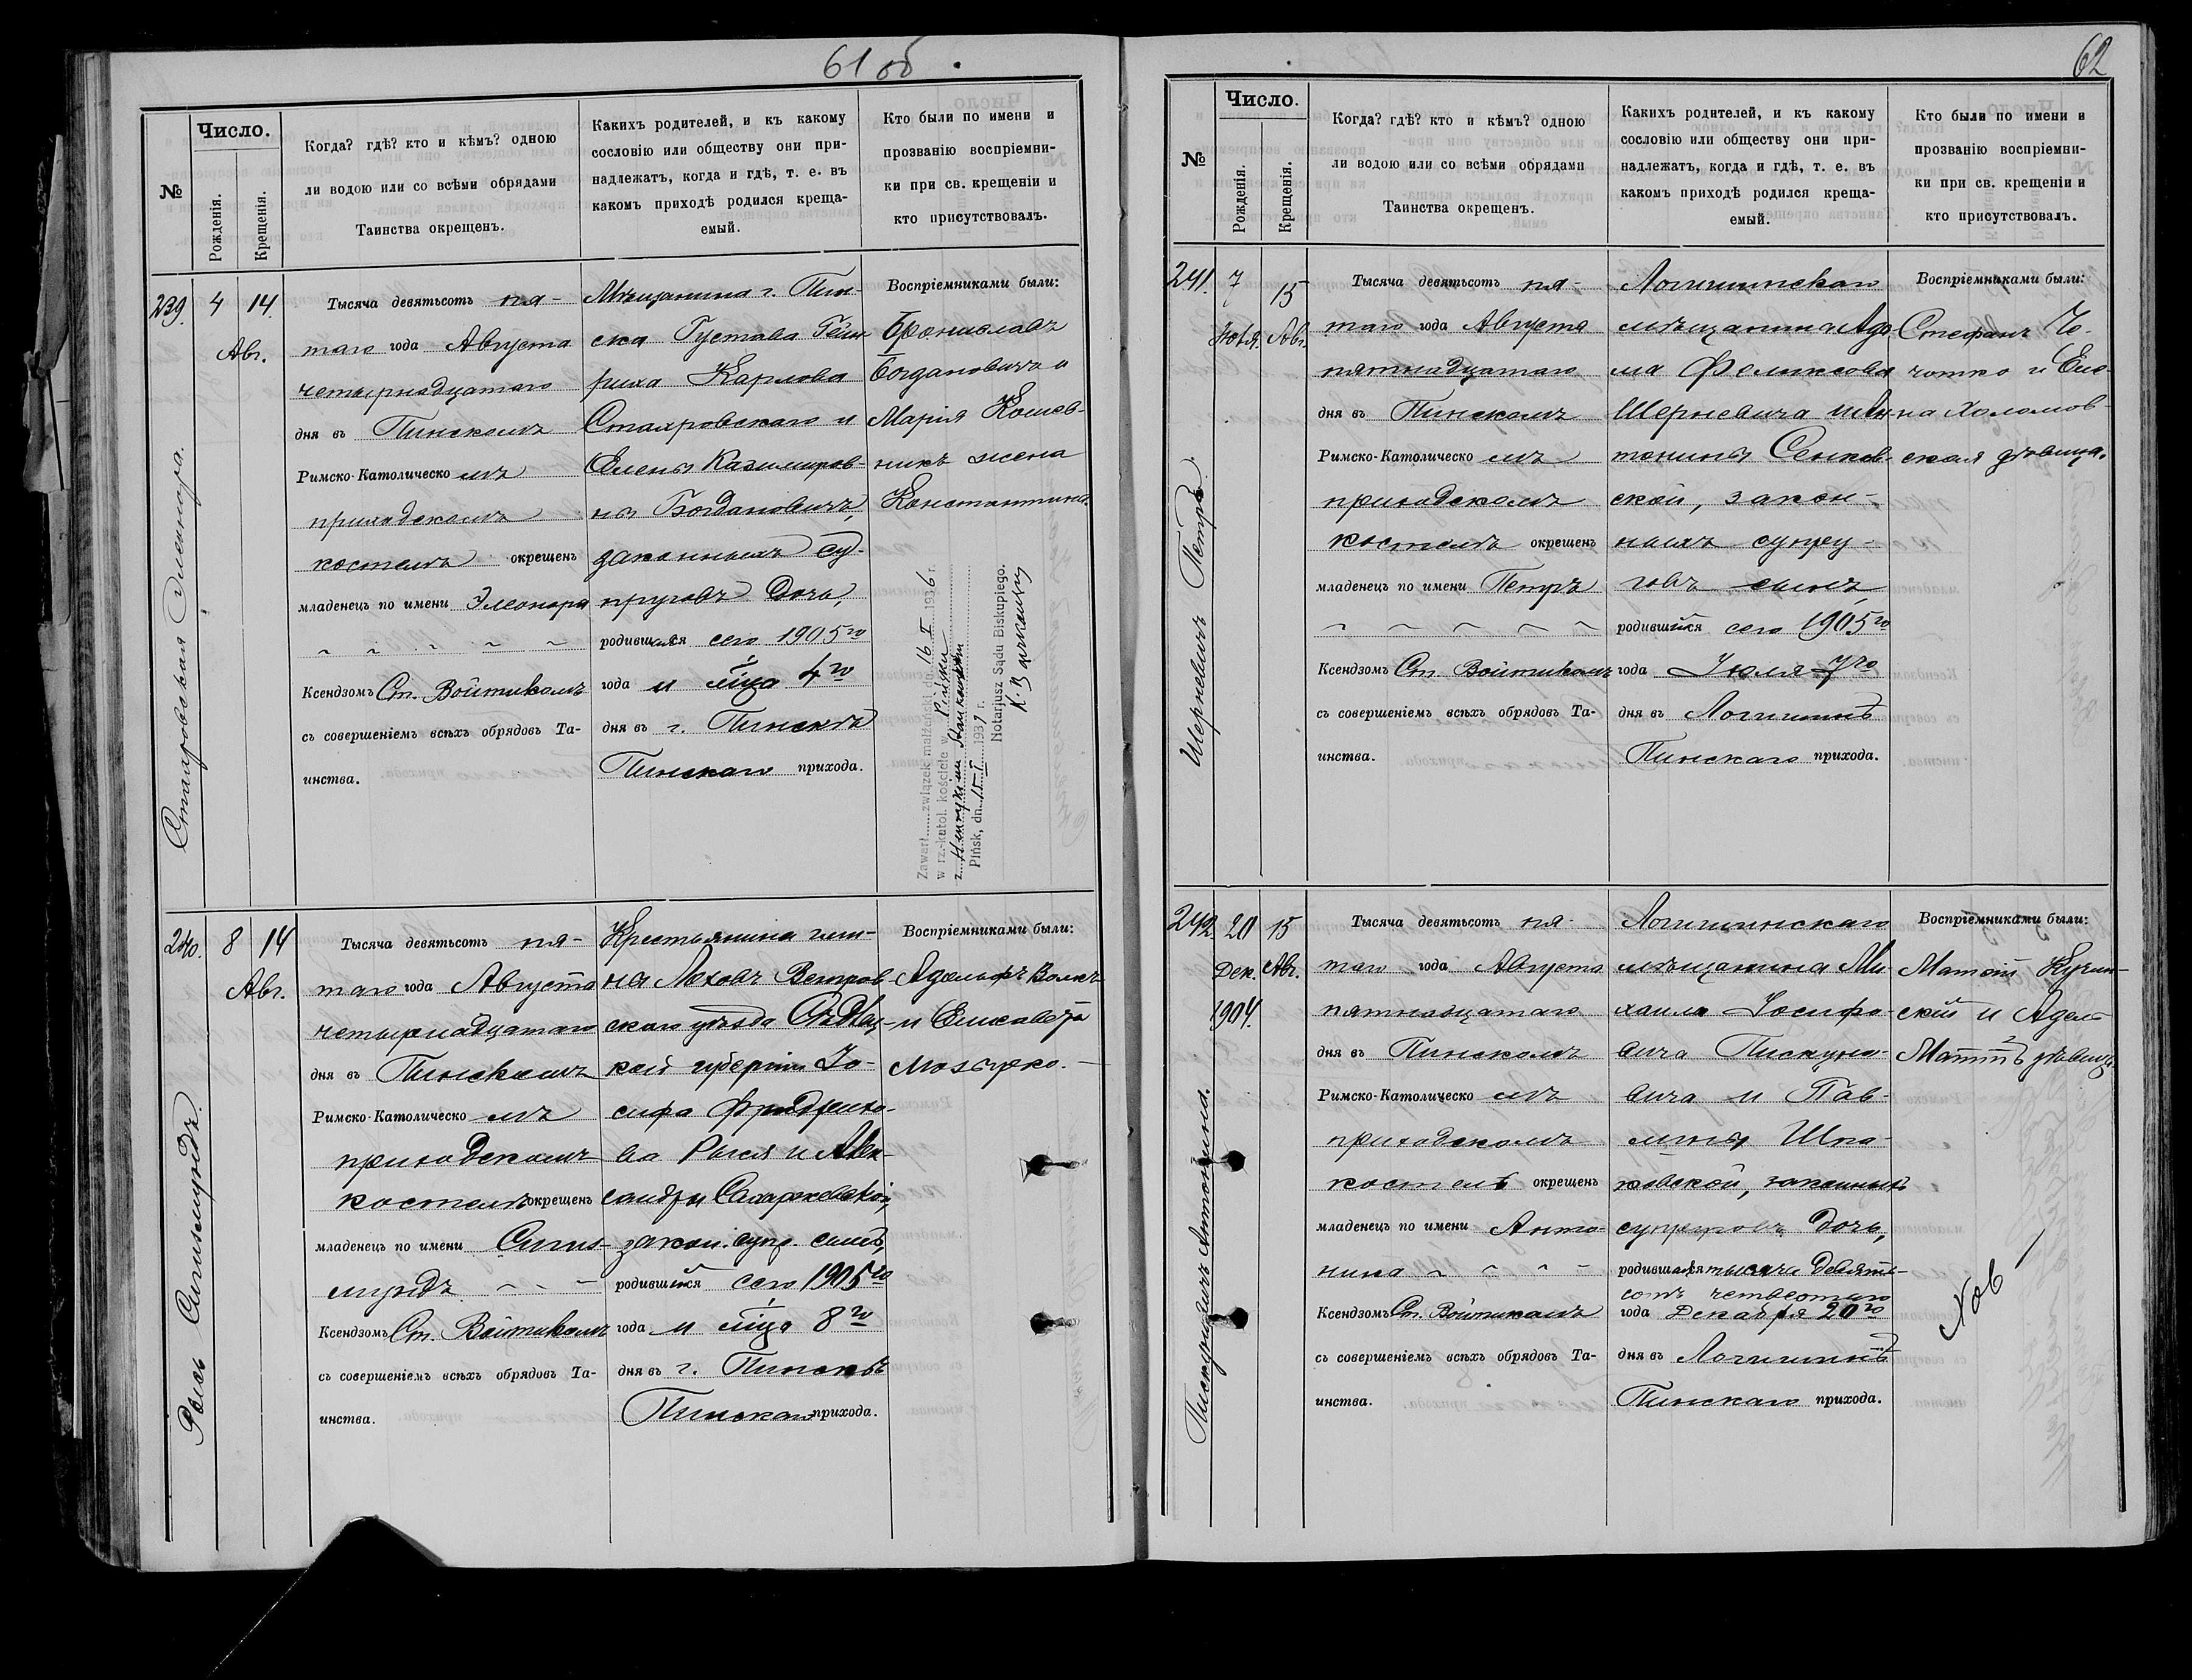 61 об.
№
Число.
Рожденія.
Крещенія.
Когда? гдѣ? кто и кѣмъ? одною
ли водою или со всѣми обрядами
Таинства окрещенъ.
Какихъ родителей, и къ какому
сословію или обществу они при-
надлежатъ, когда и гдѣ, т. е. въ
какомъ приходѣ родился креща-
емый.
Кто были по имени и
прозванію воспріемни-
ки при св. крещеніи и
кто присутствовалъ.
239.
4 14
Авг.
Элеонора.
Тысяча девятьсотъ пя-
таго года Августа
четырнадцатаго
дня въ Пинскомъ
Римско-Католическомъ
приходскомъ
костелѣ окрещенъ
младенецъ по имени Элеонора
Ксендзомъ Ст. Войтикомъ
съ совершеніемъ всѣхъ обрядовъ Та-
инства.
Мѣщанина г. Пин-
ска Густава Ген-
риха Карлова
и
Елены Казимиров-
ны Богдановичъ,
законныхъ су-
пруговъ дочь,
родившаяся сего 1905го
года и м̃ца 4го
дня въ г. Пинскѣ
Пинскаго прихода.
Воспріемниками были:
Брониславъ
Богдановичъ и
Марія
жена
Константина.
Zawarł......związek małżeński dn. 16 I 1936 r.
w rz.-katol. kościele w Pińsku
z Henrykiem
Pińsk, dn. 15 I 1937 r.
Notarjusz Sądu Biskupiego.
240.
8 14
Авг.
Рысь Сигизмундъ.
Тысяча девятьсотъ пя-
таго года Августа
четырнадцатаго
дня въ Пинскомъ
Римско-Католическомъ
приходскомъ
костелѣ окрещенъ
младенецъ по имени Сигиз-
мундъ
Ксендзомъ Ст. Войтикомъ
съ совершеніемъ всѣхъ обрядовъ Та-
инства.
Крестьянина гми-
ны
уѣзда Сѣдлец-
кой губерніи Іо-
сифа
ва Рыся и Алек-
сандры
закон. супр. сынъ,
родившійся сего 1905го
года и м̃ца 8го
дня въ г. Пинскѣ
Пинскаго прихода.
Воспріемниками были:
Адольфъ Волкъ
и Елисавета
62
№
Число.
Рожденія.
Крещенія.
Когда? гдѣ? кто и кѣмъ? одною
ли водою или со всѣми обрядами
Таинства окрещенъ.
Какихъ родителей, и къ какому
сословію или обществу они при-
надлежатъ, когда и гдѣ, т. е. въ
какомъ приходѣ родился креща-
емый.
Кто были по имени и
прозванію воспріемни-
ки при св. крещеніи и
кто присутствовалъ.
241.
7 15
Іюля. Авг.
Шерневичъ Петръ.
Тысяча девятьсотъ пя-
таго года Августа
пятнадцатаго
дня въ Пинскомъ
Римско-Католическомъ
приходскомъ
костелѣ окрещенъ
младенецъ по имени Петръ
Ксендзомъ Ст. Войтикомъ
съ совершеніемъ всѣхъ обрядовъ Та-
инства.
Логишинскаго
мѣщанина Ада-
ма Феликсова
Шерневича и Ан-
тонины Сенков-
ской, закон-
ныхъ супру-
говъ сынъ,
родившійся сего 1905го
года Іюля 7го
дня въ Логишинѣ
Пинскаго прихода.
Воспріемниками были:
Стефанъ Че-
и Еле-
на Холомов-
ская дѣвица.
242.
20 15
Дек. Авг.
1904.
Пискуновичъ Антонина.
Тысяча девятьсотъ пя-
таго года Августа
пятнадцатаго
дня въ Пинскомъ
Римско-Католическомъ
приходскомъ
костелѣ окрещенъ
младенецъ по имени Анто-
нина
Ксендзомъ Ст. Войтикомъ
съ совершеніемъ всѣхъ обрядовъ Та-
инства.
Логишинскаго
мѣщанина Ми-
хаила Іосифо-
вича Пискуно-
вича и Пав-
лины Шпа-
ковской, законныхъ
супруговъ дочь,
родившаяся тысяча девять-
сотъ четвертаго
года Декабря 20го
дня въ Логишинѣ
Пинскаго прихода.
Воспріемниками были:
Матвій Кучин-
скій и Адель
дѣвица.